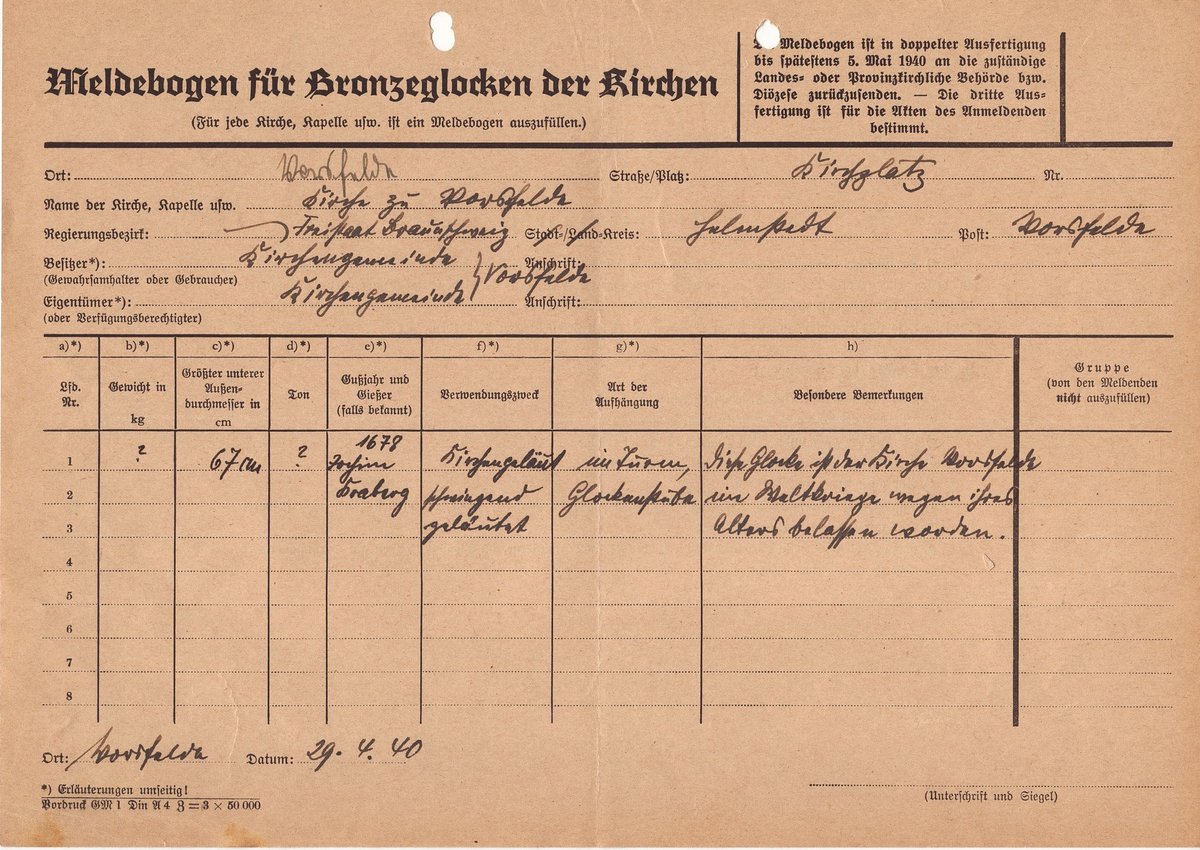 Meldebogen für Bronzeglocken der Kirchen
(Für jede Kirche, Kapelle usw. ist ein Meldebogen auszufüllen.)
Meldebogen ist in doppelter Ausfertigung
bis spätestens 5. Mai 1940 an die zuständige
Landes- oder Provinzkirchliche Behörde bzw.
Diözese zurückzusenden. — Die dritte Aus-
fertigung ist für die Akten des Anmeldenden
bestimmt.
Ort: Vorsfelde Straße/Platz: Kirchplatz Nr.
Name der Kirche, Kapelle usw. Kirche zu Vorsfelde
Regierungsbezirk: Freistaat Braunschweig Stadt-/Land-Kreis: Helmstedt Post: Vorsfelde
Besitzer*): Kirchengemeinde Anschrift: Vorsfelde
(Gewahrsamhalter oder Gebraucher)
Eigentümer*): Kirchengemeinde Anschrift:
(oder Verfügungsberechtigter)
a)*) b)*) c)*) d)*) e)*) f)*) g)*) h)
Lfd. Nr.
Gewicht in kg
Größter unterer Außen-durchmesser in cm
Ton
Gußjahr und Gießer (falls bekannt)
Verwendungszweck
Art der Aufhängung
Besondere Bemerkungen
Gruppe
(von den Meldenden
nicht auszufüllen)
1678
1 ? 67 cm ? Jochim Kirchengeläut im Turm, diese Glocke ist der Kirche Vorsfelde
2 Kraberg schwingend Glockenstube im Weltkriege wegen ihres
3 geläutet Alters belassen worden.
4
5
6
7
8
Ort: Vorsfelde Datum: 29. 4. 40
*) Erläuterungen umseitig!
Vordruck GM 1 Din A 4 3 = 3 × 50 000
(Unterschrift und Siegel)